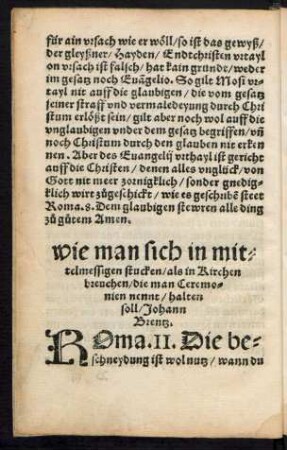 für ain vrsach wie er wöll/so ist das gewyß/
der gleyßner/Hayden/Endtchristen vrtayl
on vrsach ist falsch/hat kain grundt/weder
im gesatz noch Euãgelio. So gilt Mosi vr-
tayl nit auff die glaubigen/die vom gesatz
seiner straff vnd vermaledeyung durch Chri
stum erlößt sein/gilt aber noch wol auff die
vnglaubigen vnder dem gesatz begriffen/vñ
noch Christum durch den glauben nit erken
nen. Aber des Euangelij vrthayl ist gericht
auff die Christen/denen alles vnglück/von
Gott nit meer zornigklich/sonder gnedig-
klich wirt zůgeschickt/wie es geschribẽ steet
Roma.8. Dem glaubigen stewren alle ding
zů gůtem Amen.
wie man sich in mit-
telmessigen stucken/als in Kirchen
breuchen/die man Ceremo-
nien nennt/halten
soll/Johann
Brentz.
ROma.II. Die be-
schneydung ist wol nutz/wann du